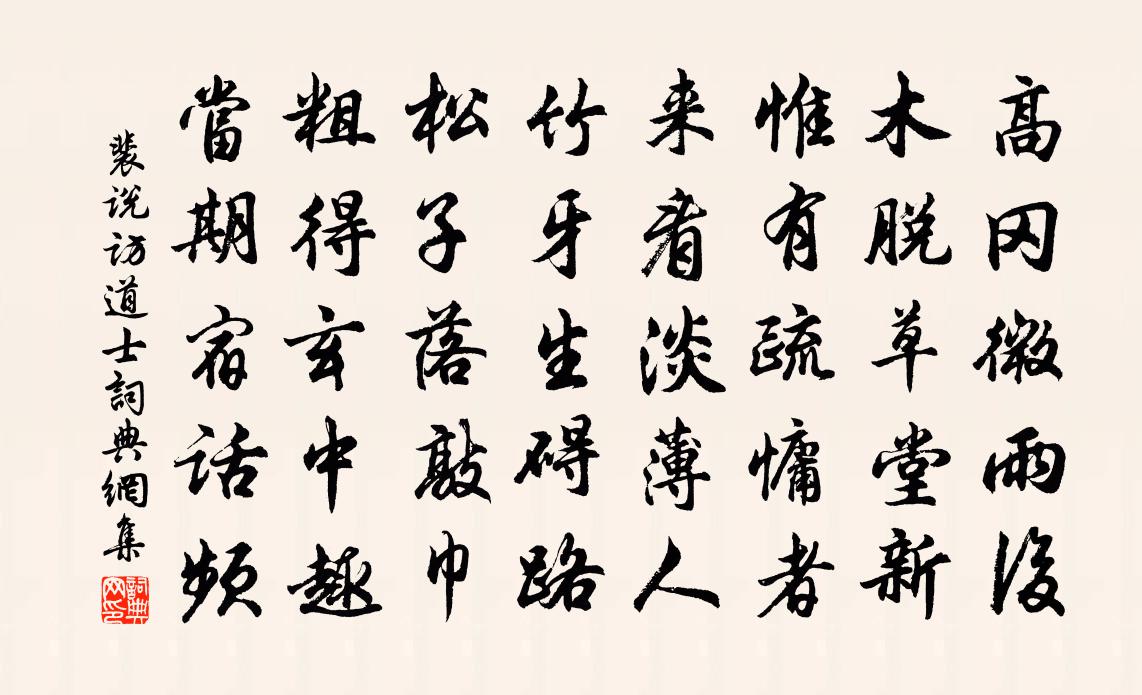 高冈微雨後
木脱草堂新
惟有疏慵者
来看淡薄人
竹牙生碍路
松子落敲巾
粗得玄中趣
當期宿话频
裴说访道士詞典網集
詞典网印